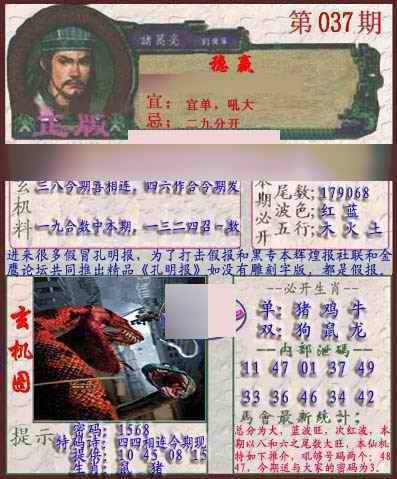 第037期
諸葛亮 劉伯溫
稳赢
宜：宜单，吼大
忌：二九分开
正版
玄机料
三八今期喜相连，四六作合今期发
一九合数中本期，一三二四召一数
本期必开
尾数:179068
波色:红 蓝
五行:木 火 土
进来很多假冒孔明报，为了打击假报和黑专本辉煌报社联和金
鹰论坛共同推出精品《孔明报》如没有雕刻字版，都是假报。
玄机图
必开生肖
单:猪 鸡 牛
双:狗 鼠 龙
内部泄码
11 47 01 37 49
33 36 46 34 42
馬會最新統計:
总分为大，蓝波旺，次红波，本
期以八和六之尾数大旺，本仙机
特如下推介，吼够号码两个: 48
47，今期送与大家的密码为3.
提示
密码: 1568
特码诗: 四四相连今期现
提供: 10 45 08 15
生肖: 鼠 猪